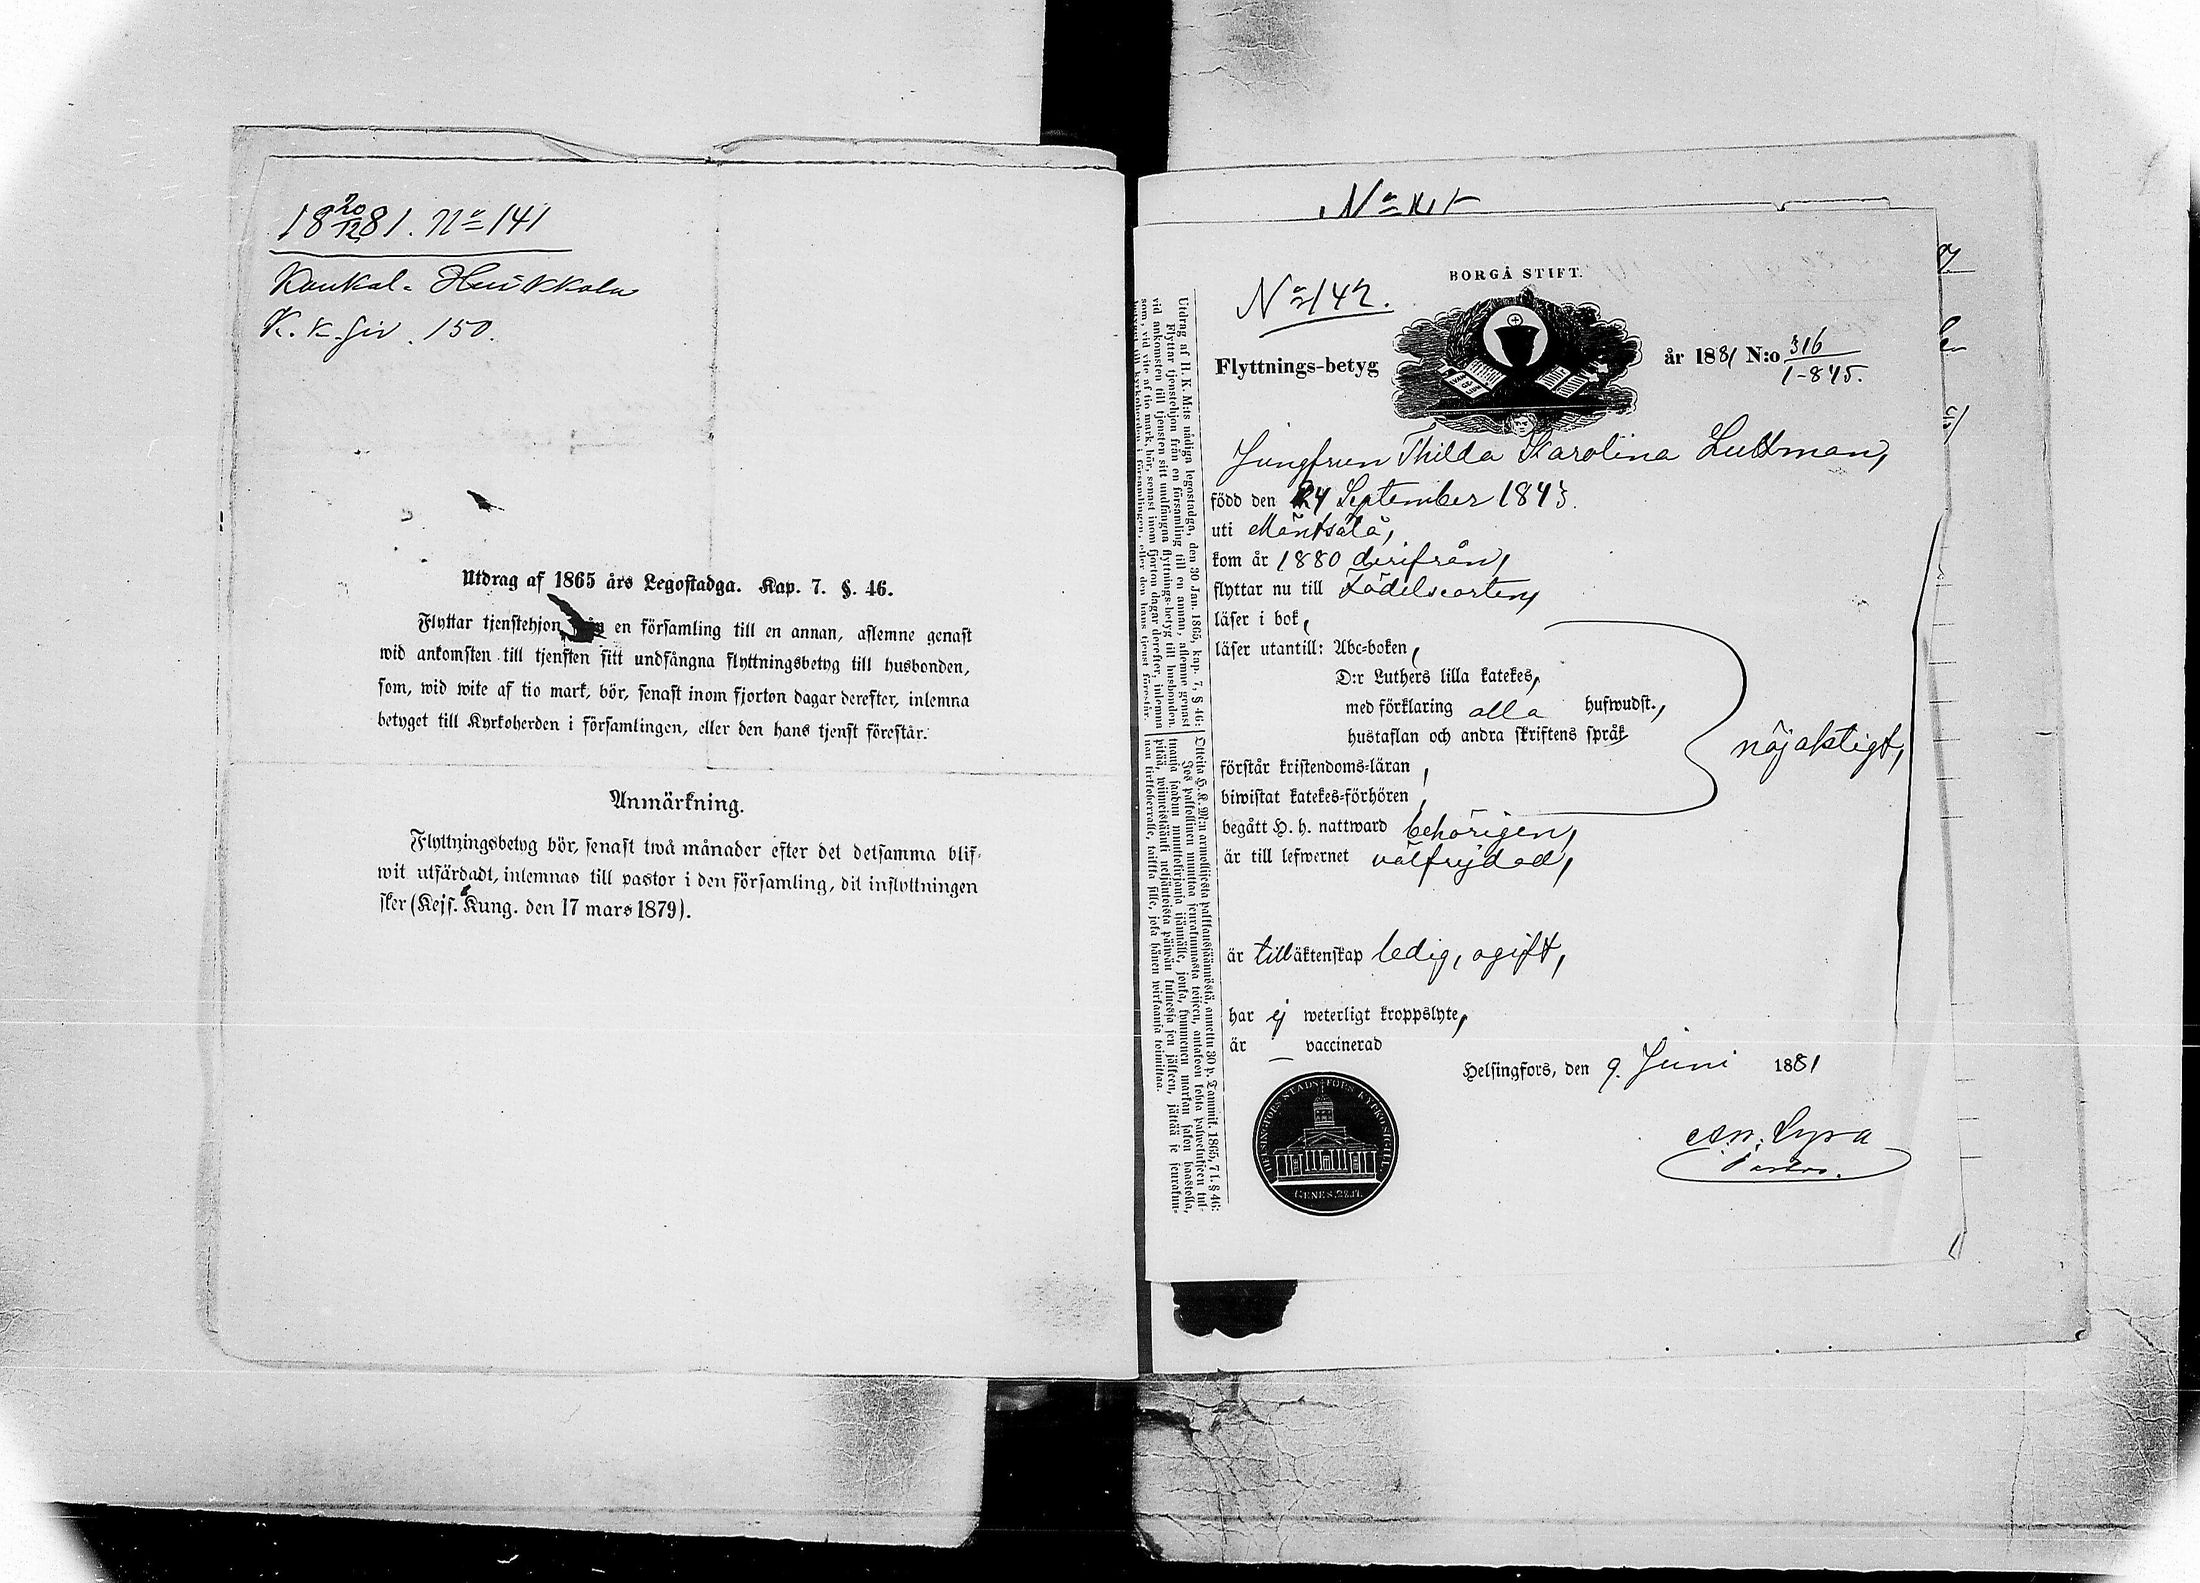 18 20/12 81. No 141
Kaukal. Huikkola
K. k. siv. 150.
Utdrag af 1865 års Legostadga. Kap. 7. §. 46.
Flyttar tjenstehjon från en församling till en annan, aflemne genast
wid ankomsten till tjensten sitt undfångna flyttningsbetyg till husbonden,
som, wid wite af tio mark, bör, senast inom fjorton dagar derefter, inlemna
betyget till Kyrkoherden i församlingen, eller den hans tjenst förestår.
Anmärkning.
Flyttningsbetyg bör, senast twå månader efter det detsamma blif-
wit utfärdadt, inlemnas till pastor i den församling, dit inflyttningen
sker (Kejs. Kung. den 17 mars 1879).
BORGÅ STIFT.
No 142.
Flyttnings-betyg år 1881 N:o 316
1-845.
Jungfrun Thilda Karolina Luttman,
född den 24 September 1843.
uti Mäntsälä,
kom år 1880 derifrån,
flyttar nu till födelseorten,
läser i bok,
läser utantill: Abc-boken,
D:r Luthers lilla katekes,
med förklaring alla hufwudst.,
hustaflan och andra skriftens språk
förstår kristendoms-läran,
biwistat katekes-förhören,
nöjaktigt,
begått H. h. nattward behörigen,
är till lefwernet välfrejdad,
är till äktenskap ledig, ogift,
har ej weterligt kroppslyte,
är — vaccinerad
Helsingfors, den 9. Juni 1881
Lyra
Pastor.
HELSINGFORS STADS KYRKOSIGILL
GENES. 28.17.
Utdrag af H. K. M:ts nådiga legostadga, den 30 Jan. 1865, kap. 7, § 46:
Flyttar tjenstehjon från en församling till en annan, aflemne genast
vid ankomsten till tjensten sitt undfångna flyttnings-betyg till husbonden,
som, vid vite af tio mark, bör, senast inom fjorton dagar derefter, inlemna